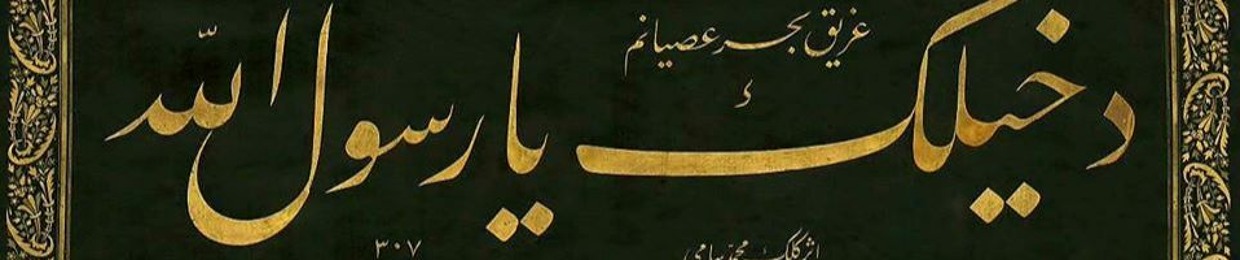 غریق بحر عصیانم
دخیلک یا رسول الله
اثر کلک محمد سامی
۳۰۷